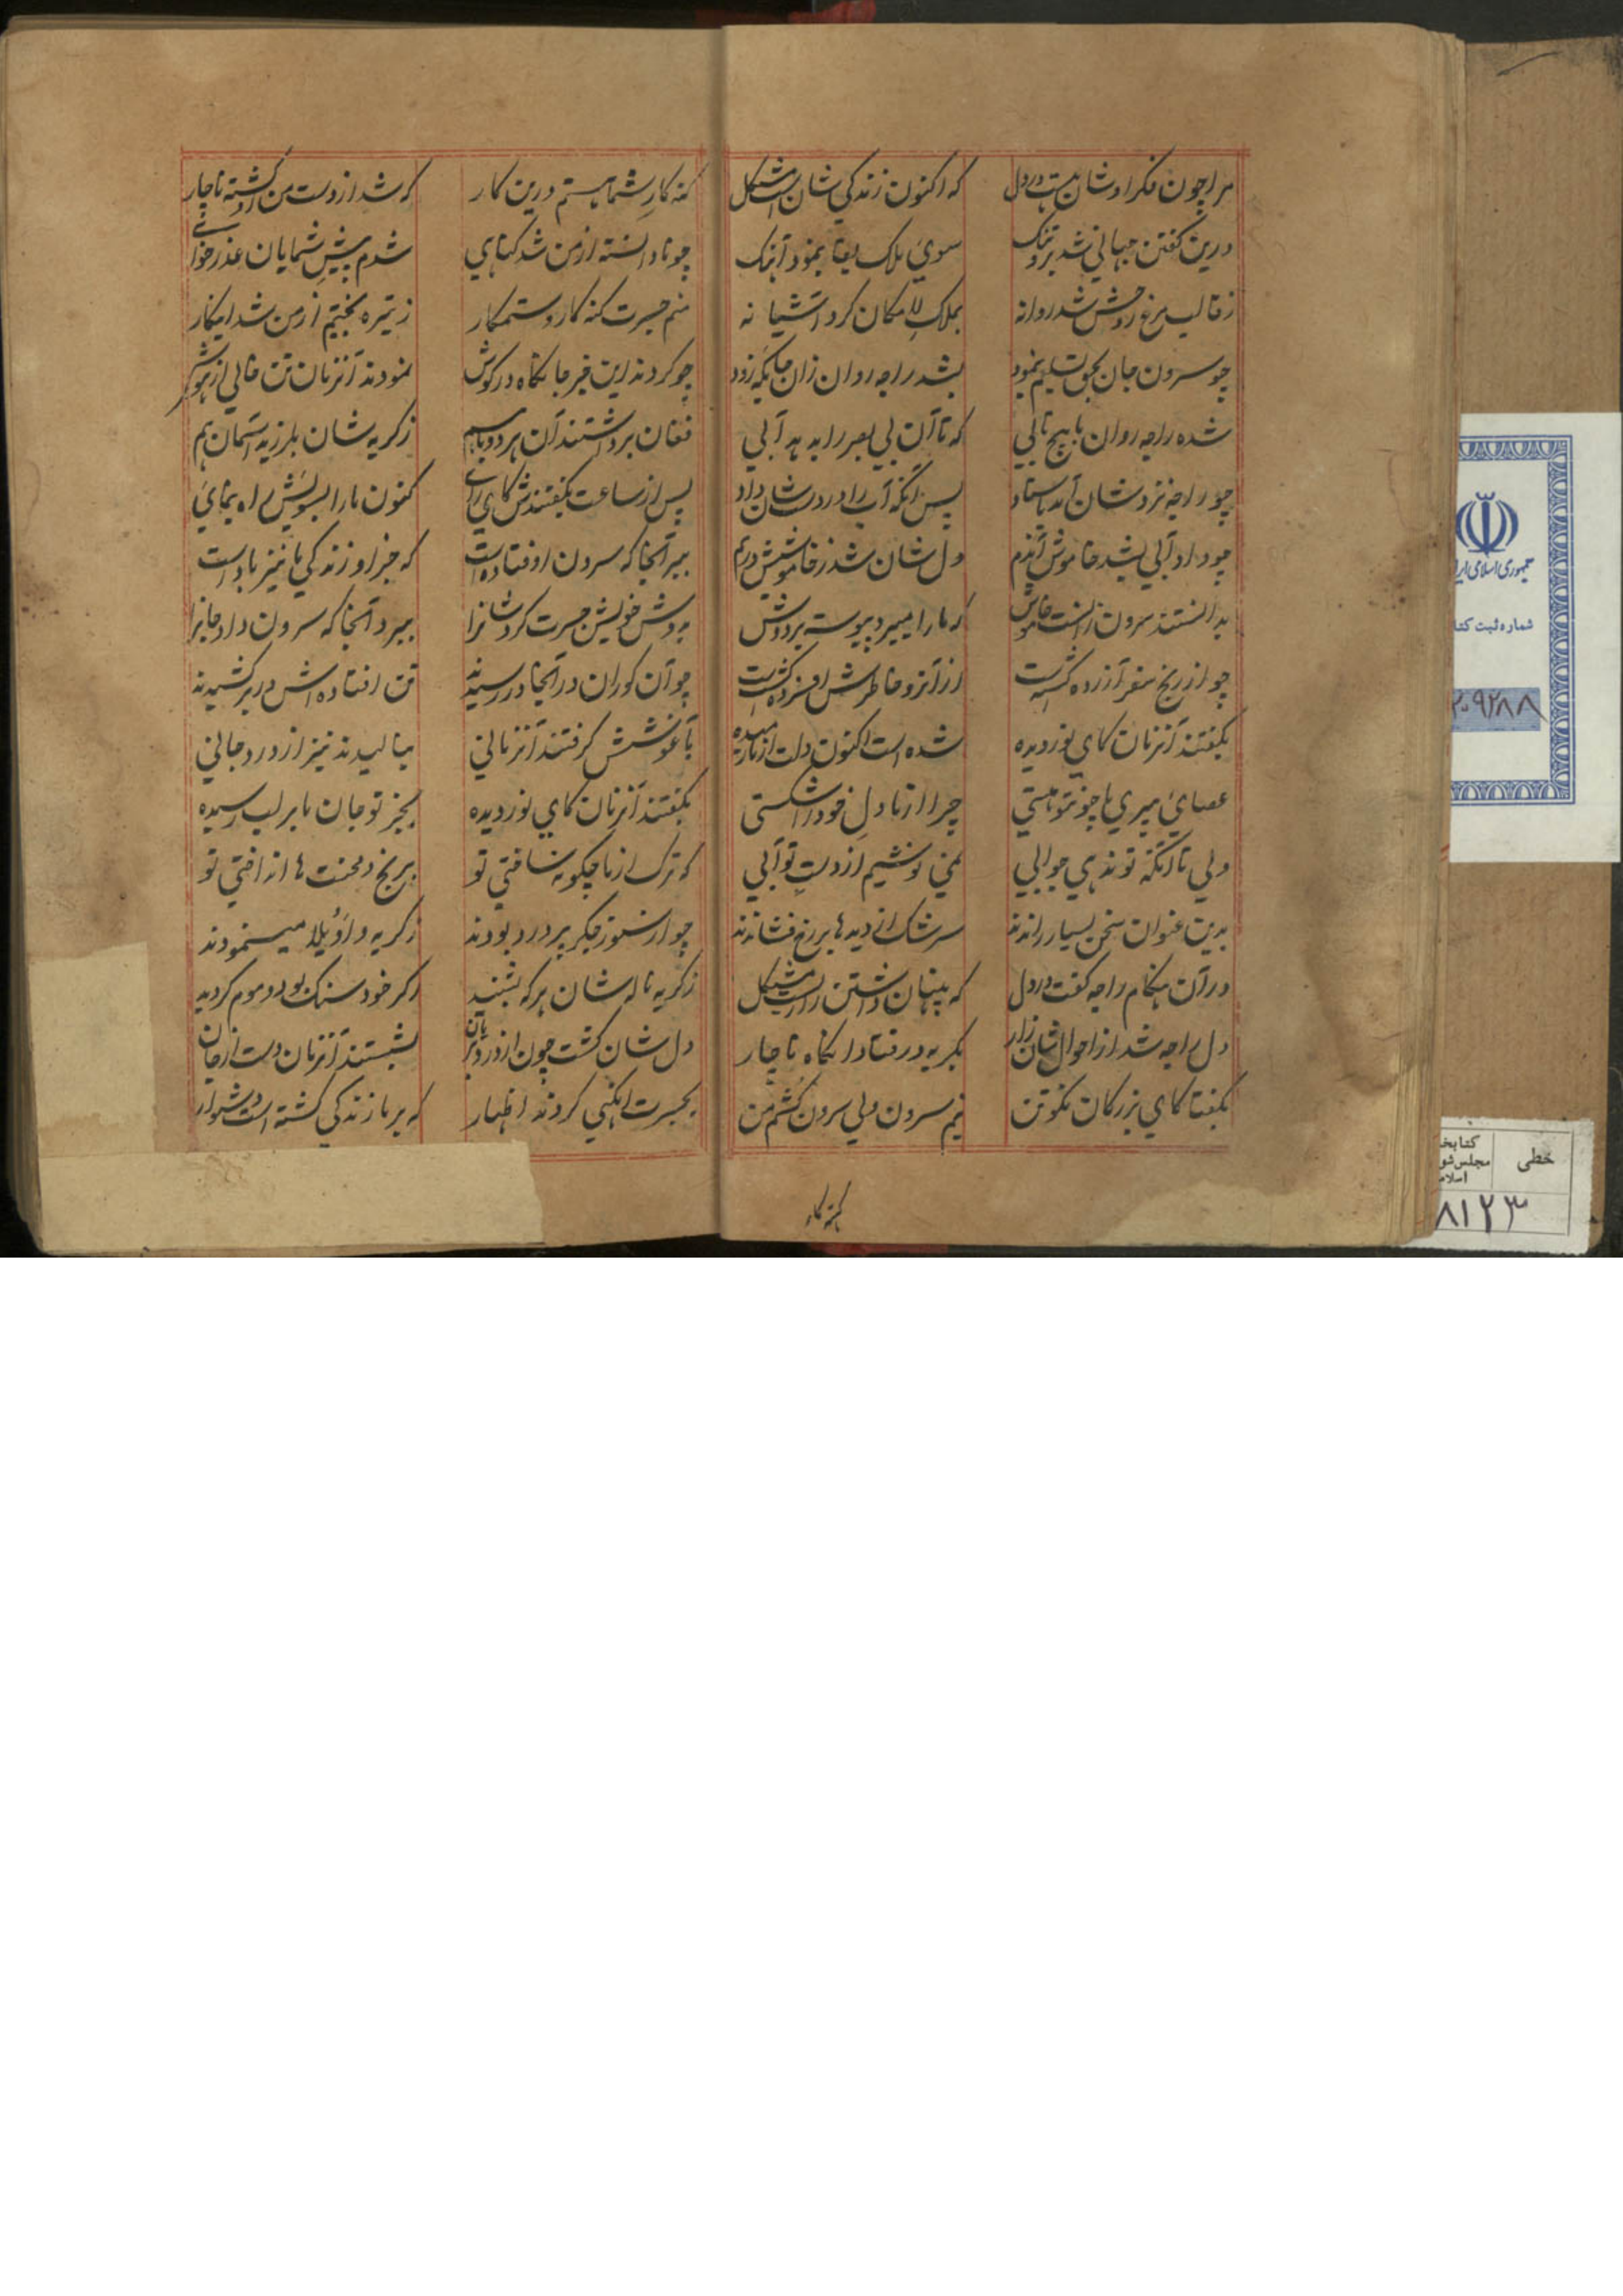 مرا چون فکر اوشان هست در دل که اکنون زندگی شان است مشکل
درین گفتن جهانی شد برو تنگ سوی ملک بقا بنمود آهنگ
ز قالب مرغ روحش شد روانه بملک لامکان کرد آشیانه
چو سرون جان بحق تسلیم بنمود بشد راجه روان زان جایگه زود
شده راجه روان با پیچ تابی که تا آن بی بصر را به دهد آبی
چو راجه نزد شان آمد باستاد پس آنگه آب را در دست شان داد
چو داد آبی بشد خاموش آندم دل شان شد ز خاموشیش درهم
بدانستند سرون زانست خاموش که ما را میبرد پیوسته بر دوش
چو از رنج سفر آزرده گشتست از آنرو خاطرش افسرده گشتست
بگفتند آنزمان کای نور دیده شده است اکنون دلت از ما رمیده
عصای پیری ما چون تو هستی چرا از ما دل خود را شکستی
ولی تا آنکه تو ندهی جوابی نمی نوشیم از دست تو آبی
بدین عنوان سخن بسیار راندند سرشک از دیدها بر رخ فشاندند
در آن هنگام راجه گفت در دل که پنهان داشتن رازست مشکل
دل راجه شد از احوال شان زار بگریه درفتاد آنگاه ناچار
بگفتا کای بزرگان نکو تن نیم سرون ولی سرون کشم من
گنه کار
گنه کار شما هستم درین کار که شد از دست من او کشته ناچار
چو نادانسته از من شد گناهی شدم پیش شمایان عذر خواهی
منم حسرت گنه کار و ستمکار ز تیره بختیم از من شد اینکار
چو کردند این خبر جانکاه در گوش نمودند آنزمان تن خالی از هوش
فغان برداشتند آن هر دو باهم ز گریه شان بلرزید آسمان هم
پس از ساعت بگفتندش که ای رای کنون ما را بسویش راه بنمای
ببر آنجا که سرون اوفتاده است که جز او زندگی ما نیز باد است
بدوش خویش حسرت کرد شانرا ببرد آنجا که سرون داد جانرا
چو آن کوران در آنجا در رسیدند تن افتاده اش در بر کشیدند
بآغوشش گرفتند آنزمانی بنالیدند نیز از درد جانی
بگفتند آنزمان کای نور دیده بجز تو جان ما بر لب رسیده
که ترک از ما چگونه ساختی تو برنج و محنت ها انداختی تو
چو از سوز جگر پر درد بودند ز گریه واویلا مینمودند
ز گریه ناله شان هر که بشنید اگر خود سنگ بود و موم گردید
دل شان گشت چون از درد بریان بشستند آنزمان دست از جان
بحسرت آنگهی کردند اظهار که بر ما زندگی گشته است دشوار
جمهوری اسلامی ایر
شماره ثبت کتا
۲۰۹۲۸۸
خطی
کتابخ
مجلس شو
اسلام
۸۱۲۳